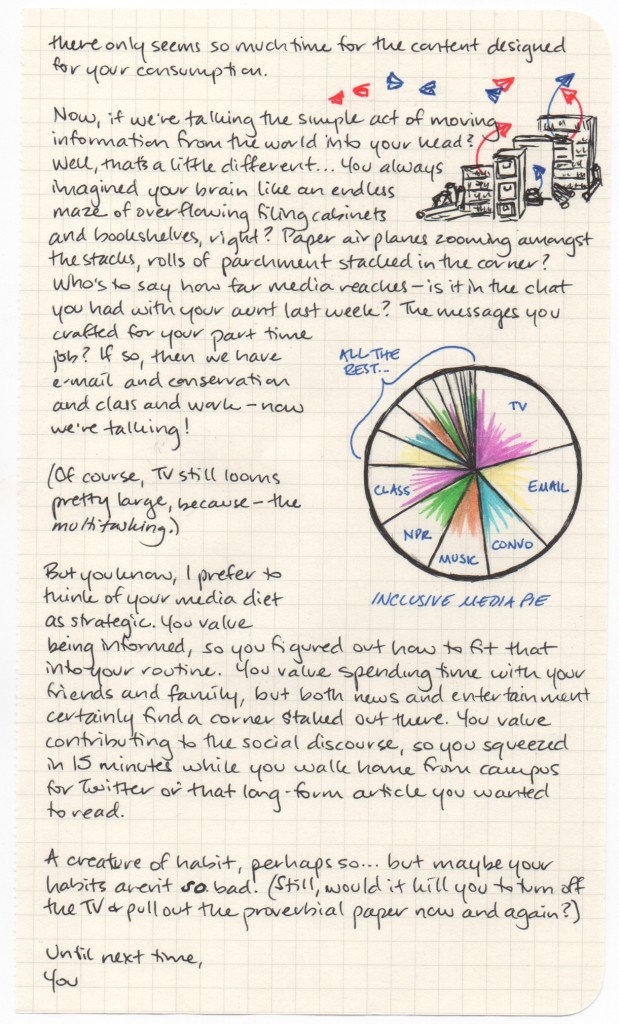 there only seems so much time for the content designed
for your consumption.
Now, if we're talking the simple act of moving
information from the world into your head?
Well, that's a little different... You always
imagined your brain like an endless
maze of overflowing filing cabinets
and bookshelves, right? Paper airplanes zooming amongst
the stacks, rolls of parchment stacked in the corner?
Who's to say how far media reaches – is it in the chat
you had with your aunt last week? The messages you
crafted for your part time
job? If so, then we have
e-mail and conservation
and class and work – now
we're talking!
(Of course, TV still looms
pretty large, because – the
multitasking.)
ALL THE
REST...
TV
EMAIL
CONVO
MUSIC
NPR
CLASS
INCLUSIVE MEDIA PIE
But you know, I prefer to
think of your media diet
as strategic. You value
being informed, so you figured out how to fit that
into your routine. You value spending time with your
friends and family, but both news and entertainment
certainly find a corner staked out there. You value
contributing to the social discourse, so you squeezed
in 15 minutes while you walk home from campus
for Twitter or that long-form article you wanted
to read.
A creature of habit, perhaps so... but maybe your
habits aren't so bad. (Still, would it kill you to turn off
the TV & pull out the proverbial paper now and again?)
Until next time,
You